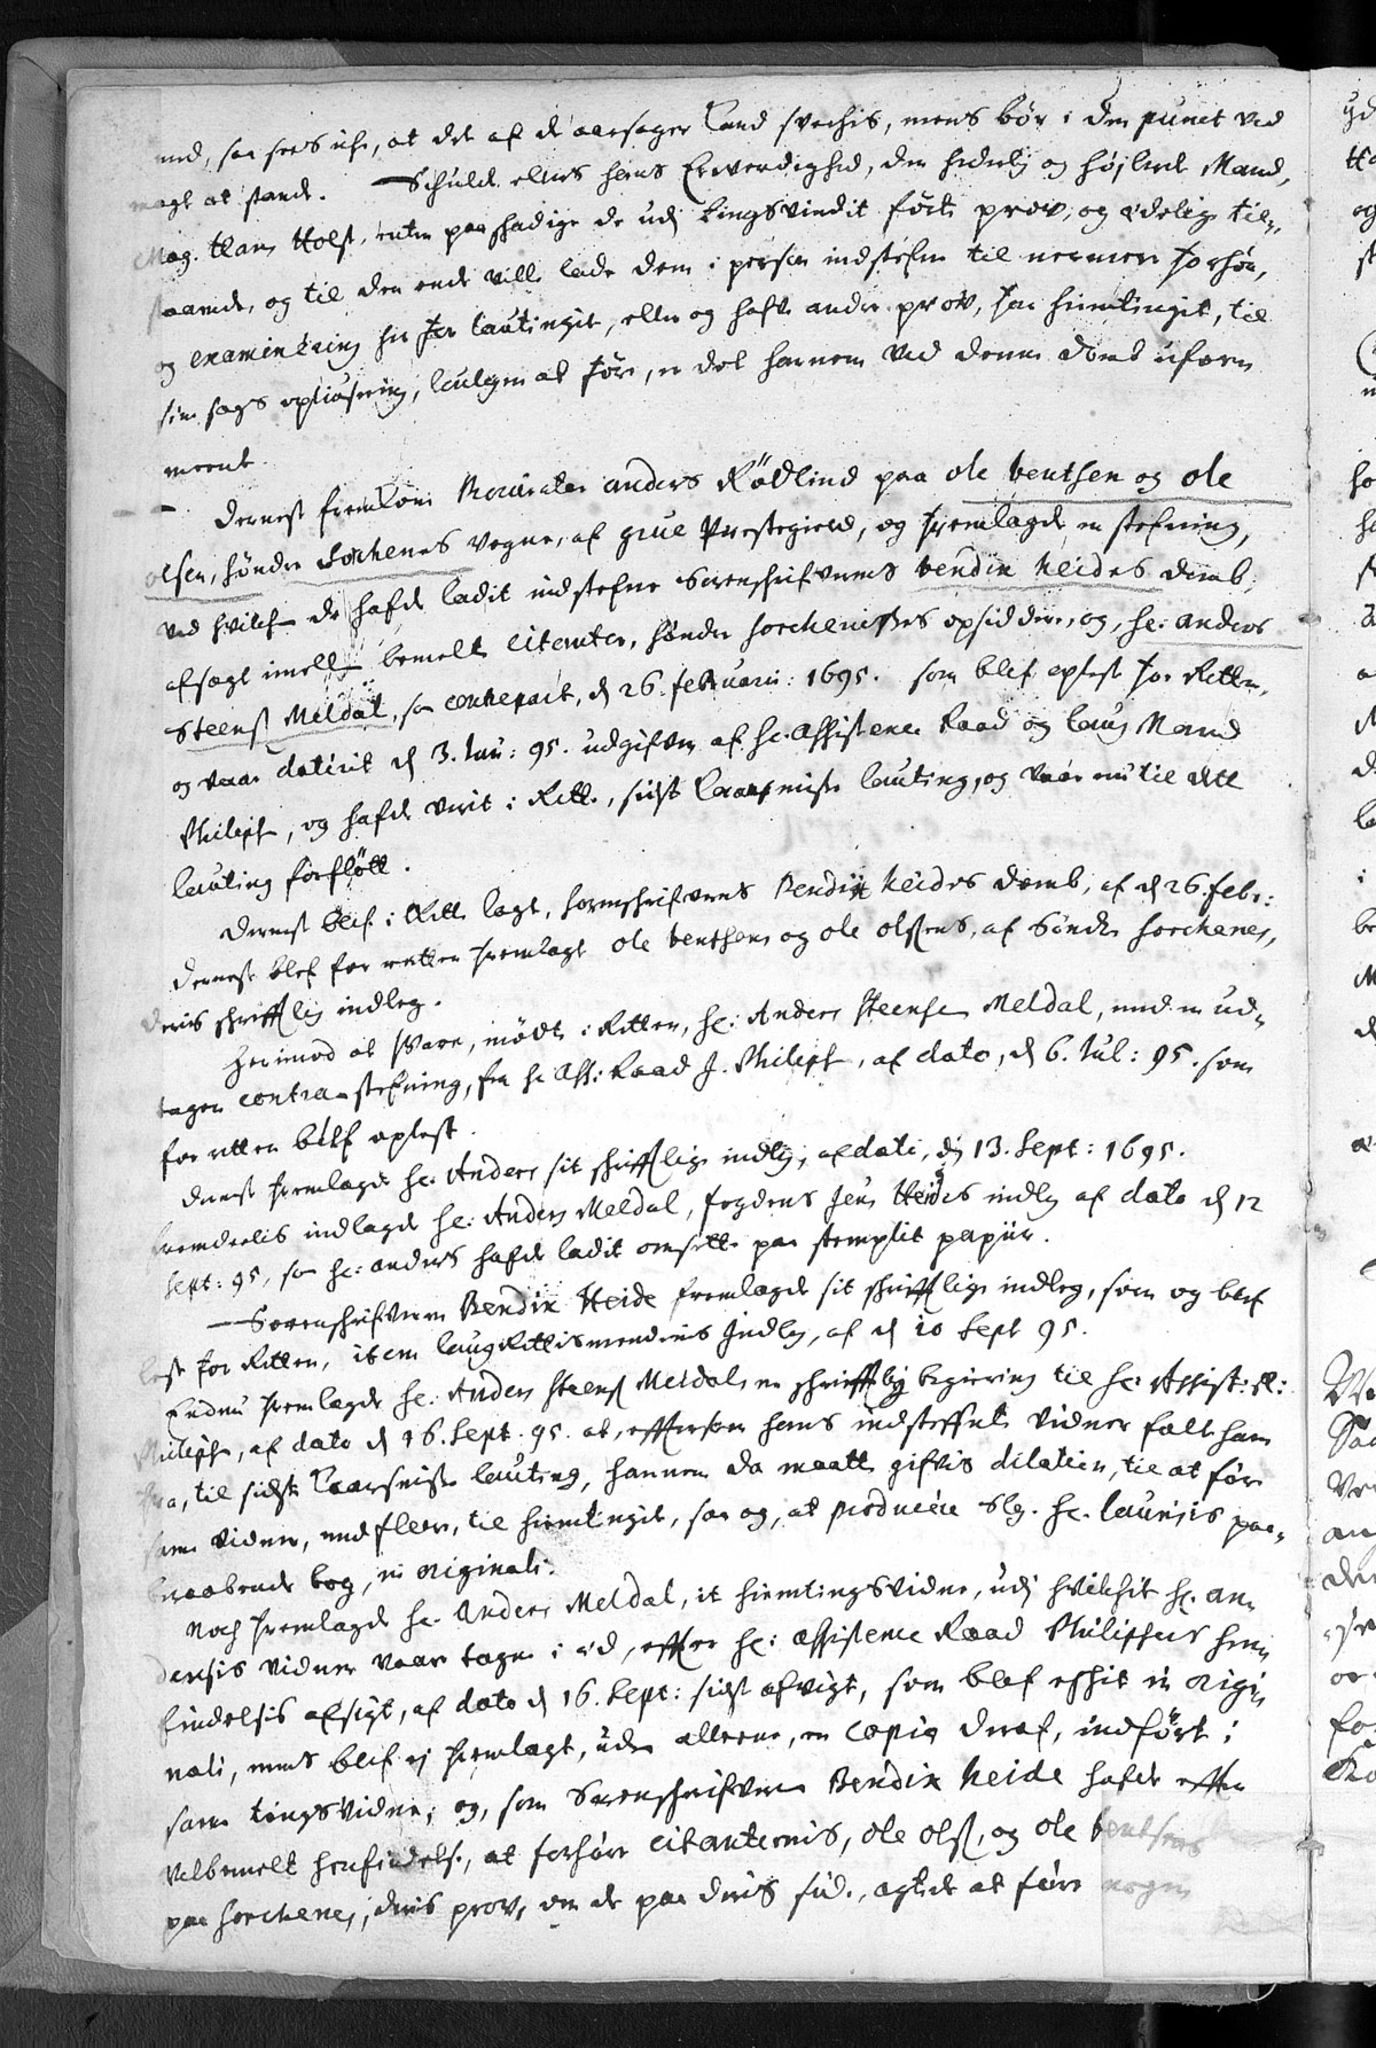 med, saa sees iche, at det af de aarsager kand svechis, mens bør i den punct ved
magt at stande. Schulde ellers hans Erwerdighed, den hederlig og højlærde Mand,
Mag. Hans Holst, enten paaschadige de udj tingsvindit førte prov, og ædelige til-
staaende, og til den ende ville lade dem i person indstefne til nermere forhør,
og examinering her for laugtingit, eller og hafve andre prov, for hiemtingit, til
sin sags opliusning, lauligen at føre, er det hannem ved denne domb uforn
meent.
Dernest fremkom Procurator anders Rödlind paa ole bentsen og ole
olsen, søndre Forchenes vegne, af grue Prestegield, og fremlagde en stefning,
ved hvilchen de hafde ladit indstefne Sorenschrifverens bendix heides domb,
afsagt imellem bemelte Citanter, søndre forchenes opsiddere, og, hr: anders
Steens: Meldal, som contrapart, d 26. februarii: 1695. som blef oplæst for Retten,
og vaar daterit d 3. Jun: 95. udgifven af hr. Assistence Raad og laug Mand
Philips, og hafde verit i Rette, sidste laurmisse lauting, og vaar nu til dette
lauting forfløtt.
Dernest blef i Rette lagt, sorenschrifverens Bendix heides domb, af d 26. febr:
Dernest blef for retten fremlagt ole bentsens og ole olsens, af Søndre forchenes,
deris schrifftlig indleg.
Herimod at svare, mødte i Retten, hr: Anders Steensen Meldal, med en ud-
tagen contra-stefning, fra hr Ass: Raad J. Philips, af dato, d 6. Jul: 95. som
for retten blef oplest.
Dernest fremlagde hr. Anders sit schrifftlige indleg, af dato, d. 13. Sept: 1695.
fremdeelis indlagde hr: Anders Meldal, fogdens Jens Heides indleg af dato d 12
Sept: 95, som hr: anders hafde ladit omsette paa stemplit papiir.
Sorenschrifveren Bendix Heide fremlagde sit schrifftlige indleg, som og blef
lest for Retten, item laugRettismendenis Indleg, af d 10 Sept 95.
Endnu fremlagde hr. Anders Steens: Meldal en schrifftlig begiering til hr. Assist: R:
Philips, af dato d 16. Sept. 95. at, efftersom hans indsteffnte vidner falt ham
fra, til sidste laursmisse lauting, hannem da maatte gifvis dilation, til at føre
samme vidner, med fleere, til hiemtingit, saa og, at producere Slg. hr. Laurisis paa-
beraabende bog, in originali.
Noch fremlagde hr. Anders Meldal, it hiemtingsvidne, udj hvilchit hr. An-
dersis vidner vaar tagen i eed, effter hr: assistence Raad Philipses hen
findelsis afsigt, af dato d 16. Sept: sidst afvigt, som blef esschit in origi
nali, mens blef ej fremlagt, uden alleene, en copie deraf, indført i
samme tingsvidne; og, som Sorenschrifveren Bendix Heide hafde effter
velbemelte henfindelse, at forhøre Citanternis, ole ols:, og ole bentsens
paa forchenes, deris prov, om de paa deris side, agtede at føre nogen